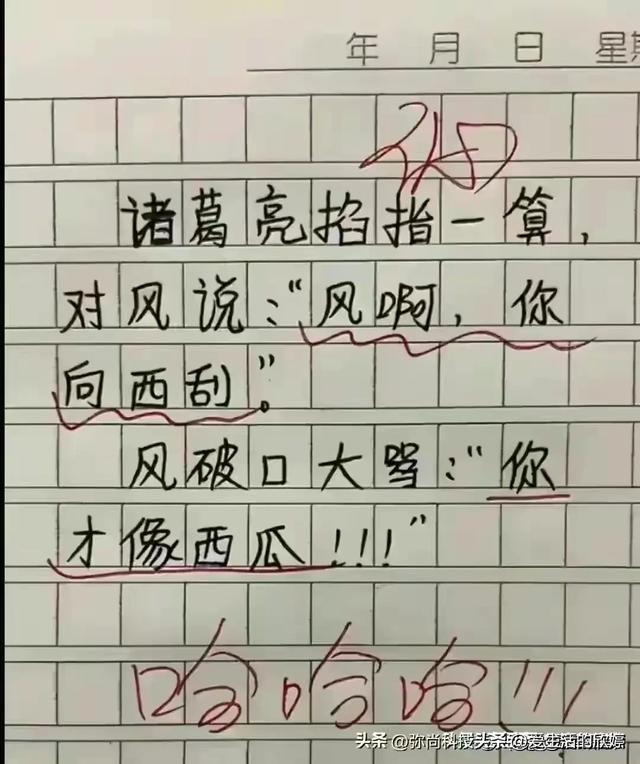 年 月 日 星期
诸葛亮掐指一算,
对风说:“风啊,你
向西刮”。
风破口大骂:“你
才像西瓜!!!”
哈哈哈!!!
头条 @爱生活的欣婷